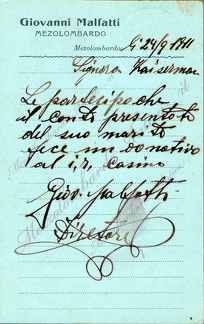 Giovanni Malfatti
MEZOLOMBARDO
Mezolombardo, li 24/9 1911
Signora Kaiserman
Le partecipo che
il conto presentato
del suo marito
fece un donativo
al i. r. casino
Giov. Malfatti
Direttore